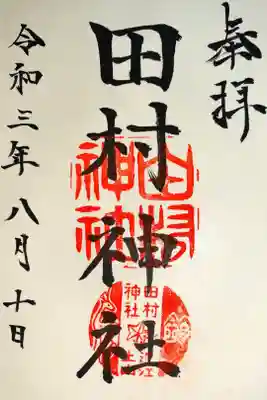 奉拝
田村神社
令和三年八月十日
田村
神社